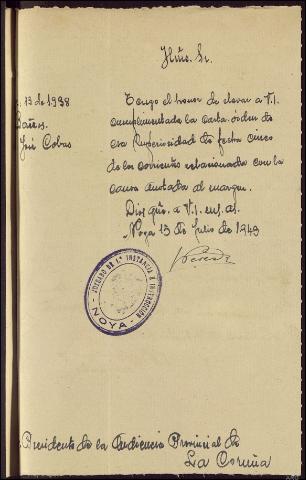 Iltmo. Sr.
13 de 1938
Daños.
José Cobas
Tengo el honor de elevar a V.I.
cumplimentada la carta-orden de
esa Superioridad de fecha cinco
de los corrientes relacionada con la
causa anotada al margen.
Dios güe. a V.I. ms. as.
Noya 13 de Julio de 1943
JUZGADO DE 1ª INSTANCIA E INSTRUCCION
NOYA
Presidente de la Audiencia Provincial de
La Coruña